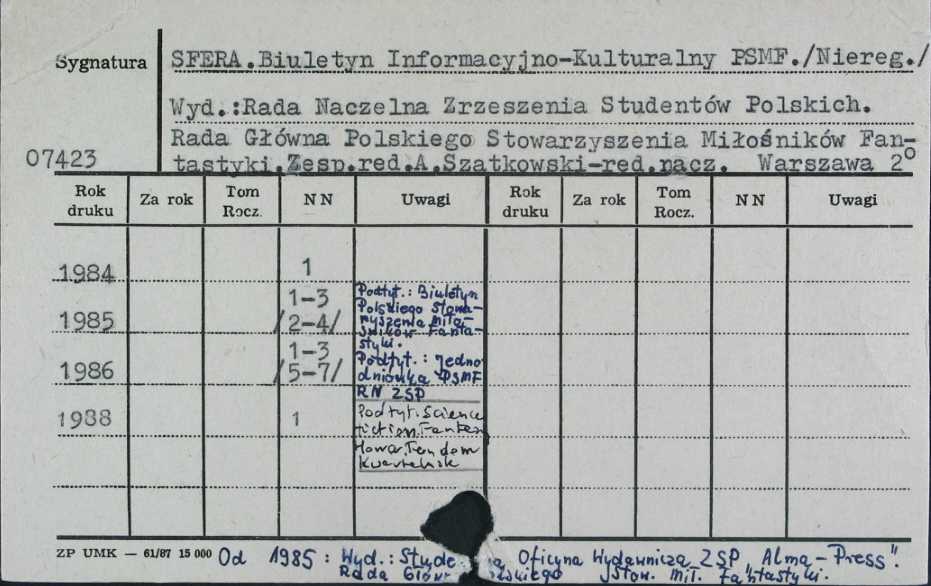 Sygnatura
SFERA.Biuletyn Informacyjno-Kulturalny PSMF./Niereg./
Wyd.:Rada Naczelna Zrzeszenia Studentów Polskich.
Rada Główna Polskiego Stowarzyszenia Miłośników Fan-
07423
tastyki.Zesp.red.A.Szatkowski-red.nacz. Warszawa 2°
Rok druku Za rok Tom Rocz. NN Uwagi Rok druku Za rok Tom Rocz. NN Uwagi
1984 1
1985 1-3 /2-4/
Podtyt.: Biuletyn
Polskiego Stowa-
rzyszenia Miło-
śników Fanta-
styki.
1986 1-3 /5-7/
Podtyt.: Jedno
dniówka PSMF
RN ZSP
1988 1
Podtyt. Science
fiction. Fantasy
Horror. Fandom
Kwartalnik
ZP UMK — 61/87 15 000
Od 1985: Wyd.: Oficyna Wydawnicza ZSP "Alma-Press".
Rada Stow. Mił. Fantastyki.